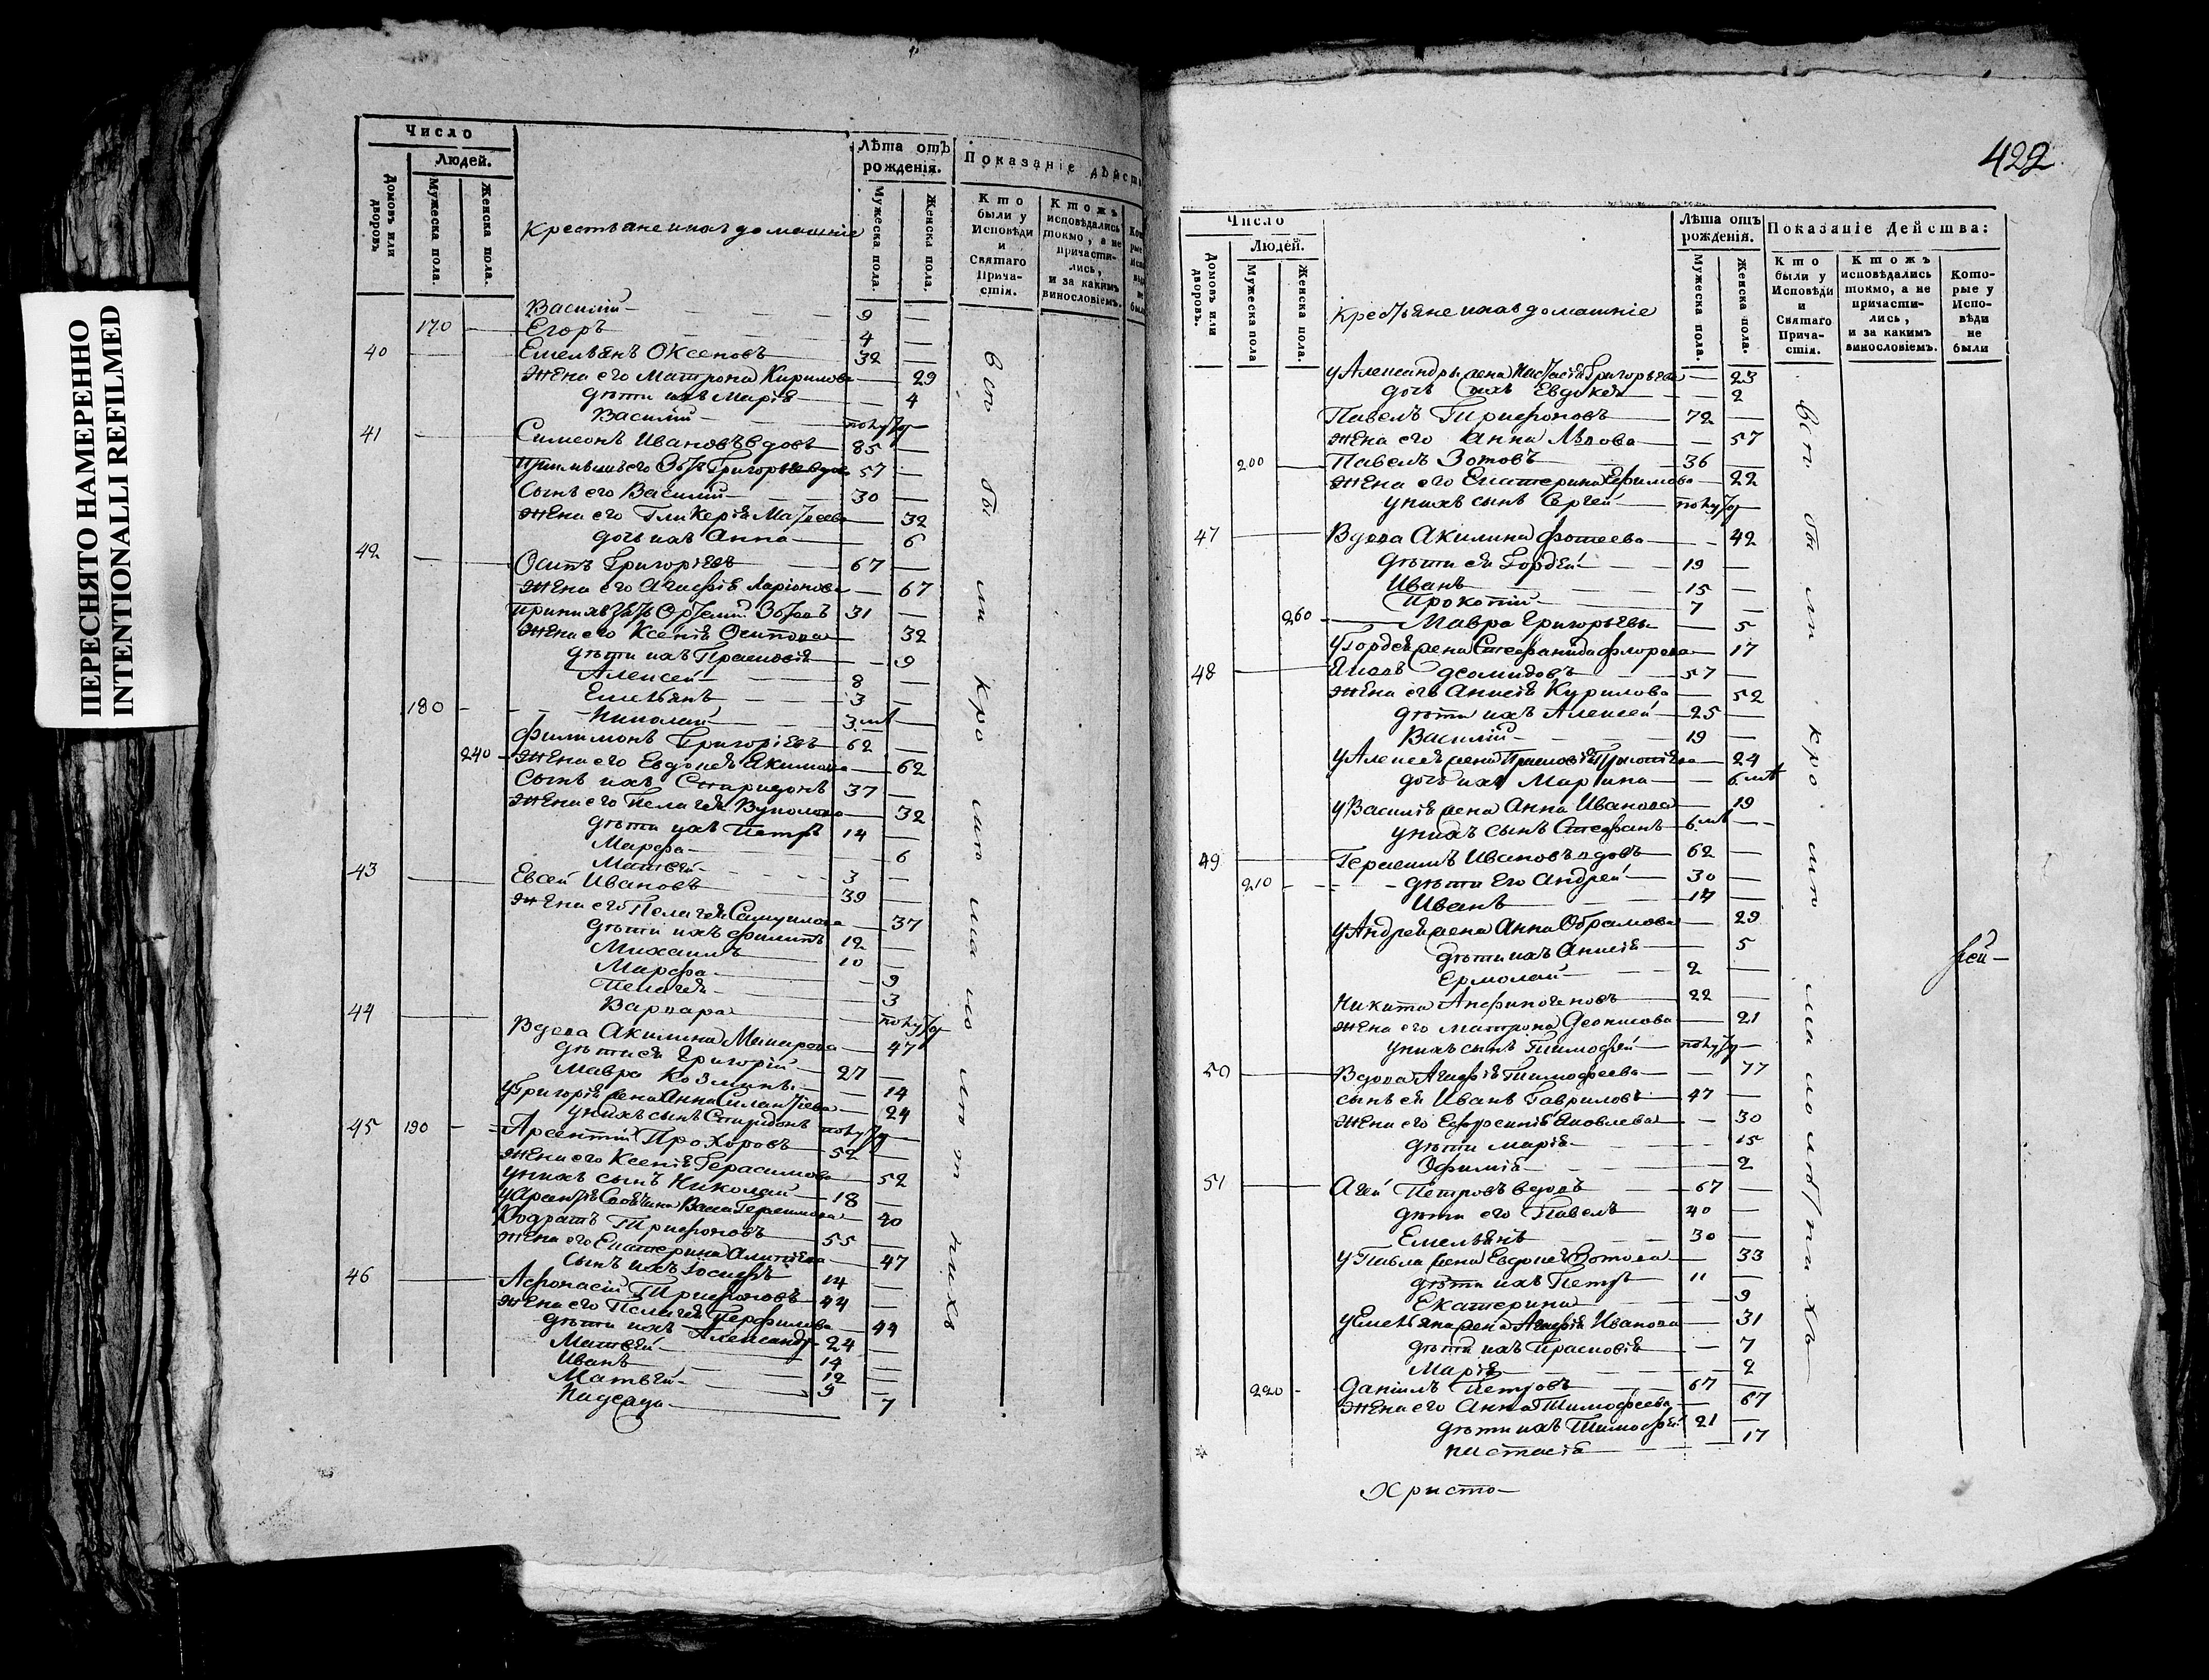 ПЕРЕСНЯТО НАМЕРЕННО
INTENTIONALLI REFILMED
Число
Людей.
Домовъ или дворовъ
Мужеска пола.
Женска пола.
Крестьяне и ихъ домашніе
Лѣта отъ рожденія.
Мужеска пола.
Женска пола.
Показаніе дѣйств
Кто были у Исповѣди и Святаго Причастія.
Ктожъ исповѣдались токмо, а не причастились, и за какимъ винословіемъ.
Василій 9
170 Егоръ 4
40 Емельянъ Оксеновъ 32
Жена его Матрона Кирилова 29
дѣти ихъ Марія 4
Василій полугод
41 Симеонъ Ивановъ вдовъ 85
57
Сынъ его Василій 30
Жена его Гликерія 32
дочь ихъ Анна 6
42 Осипъ Григоріевъ 67
Жена его Агафія Ларіонова 67
31
Жена его Ксенія Осипова 32
дѣти ихъ Прасковія 9
Алексей 8
Емельянъ 3
180 Николай 3 мѣ
Филимонъ Григоріевъ 62
240 Жена его Евдокея Екимова 62
Сынъ ихъ Спиридонъ 37
Жена его Пелагея Вуколова 32
дѣти ихъ Петръ 14
Марфа 6
Матвей 3
43 Евсей Ивановъ 39
Жена его Пелагея Самуилова 37
дѣти ихъ Филипъ 12
Михаилъ 10
Марфа 9
Пелагея 3
Варвара полугод
44 Вдова Акилина Макарова 47
дѣти ея Григорій 27
Мавра Козмины 14
у Григорія жена Анна Силантіева 24
у нихъ сынъ Спиридонъ полугод
45 190 Арсентій Прохоровъ 52
Жена его Ксенія Герасимова 52
у нихъ сынъ Николай 18
20
Кодратъ Трифоновъ 55
Жена его Екатерина 47
Сынъ ихъ Іосифъ 14
46 Афонасій Трифоновъ 44
Жена его Пелагея Перфилова 44
дѣти ихъ Александръ 24
Матвей 14
Иванъ 12
Матвей 9
7
всѣ были кромѣ малолѣтнихъ
422
Число
Людей.
Домовъ или дворовъ.
Мужеска пола
Женска пола.
Крестьяне и ихъ домашніе
Лѣта отъ рожденія.
Мужеска пола.
Женска пола.
Показаніе Действа:
Кто были у Исповѣди и Святаго Причастія.
Ктожъ исповѣдались токмо, а не причастились, и за какимъ винословіемъ.
Которые у Исповѣди не были
у Александры жена Настасія Григорьева 23
дочь ихъ Евдокея 2
Павелъ Трифоновъ 72
Жена его Анна 57
200 Павелъ Зотовъ 36
Жена его Екатерина Ефимова 22
у нихъ сынъ Сергей полугод
47 Вдова Акилина Фотеева 42
дѣти ея Гордей 19
Иванъ 15
Прокопій 7
260 Мавра Григорьевы 5
у Гордея жена Стефанида Флорова 17
48 Яковъ Деомидовъ 57
Жена его Анисія Курилова 52
дѣти ихъ Алексей 25
Василій 19
у Алексея жена Прасковія Прокопіева 24
дочь ихъ Марина 6 мѣ
у Василія жена Анна Иванова 19
у нихъ сынъ Стефанъ 6 мѣ
49 Герасимъ Ивановъ вдовъ 62
210 дѣти его Андрей 30
Иванъ 14
у Андрея жена Анна Обрамова 29
дѣти ихъ Анисія 5
Ермолай 2
Никита Анфиногеновъ 22
Жена его Матрона Деонисова 21
у нихъ сынъ Тимофей полугод
50 Вдова Агафія Тимофеева 77
сынъ ея Иванъ Гавриловъ 47
Жена его Ефросинія Яковлева 30
дѣти Марія 15
Офимія 2
51 Агей Петровъ вдовъ 67
дѣти его Павелъ 40
Емельянъ 30
у Павла жена Евдокея Зотова 33
дѣти ихъ Петръ 11
Екатерина 9
у Емельяна жена Агафія Иванова 31
дѣти ихъ Прасковія 7
Марія 2
220 Даніилъ Петровъ 67
Жена его Анна Тимофеева 67
дѣти ихъ Тимофей 21
Настасія 17
всѣ были кромѣ малолѣтнихъ
Христо-